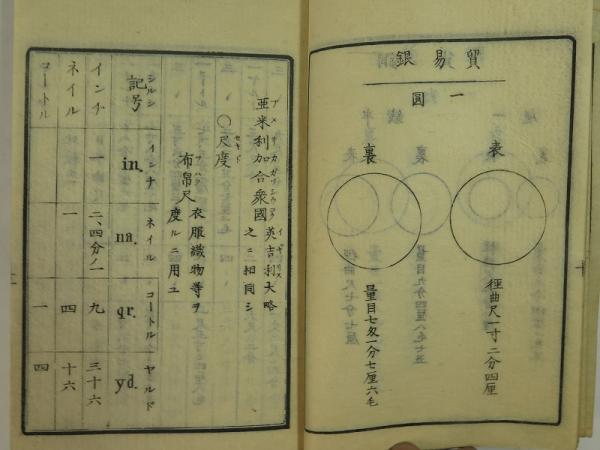 貿易銀
一圓
表
徑曲尺一寸二分四厘
裏
量目七匁一分七厘六毛
亞米利加合衆國
英吉利大略
之ニ相同シ
〇尺度
布帛尺
衣服織物等ヲ
度ルニ用ユ
シルシ
記号
インチ
in.
ネイル
na.
コートル
qr.
ヤルド
yd.
インチ
一
二、四分ノ一
九
三十六
ネイル
一
四
十六
コートル
一
四